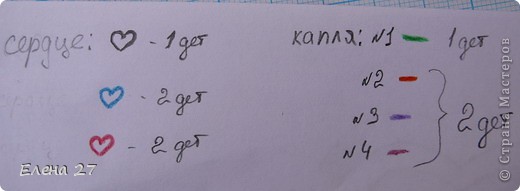 сердце: ♡ - 1 дет
♡ - 2 дет
♡ - 2 дет
капля: №1 - 1 дет
№2 -
№3 -
№4 -
2 дет
Елена 27
© Страна Мастеров